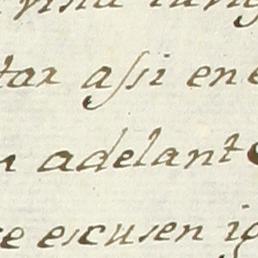 tar assi en e
n adelante
se escusen ig